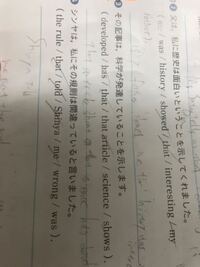 父は、私に歴史は面白いということを示してくれました。
was / history / showed / that / interesting / my
father ).
その記事は、科学が発達していることを示します。
( developed / has / that / that article / science / shows ).
シンヤは、私にその規則は間違っていると言いました。
( the rule / that / told / Shinya / me / wrong / was ).